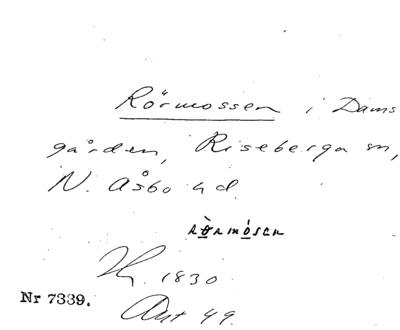 Rörmossen i Dams
gården, Riseberga sn,
N. Åsbo hd.
rörmòsen
1830
Nr 7339.
49.